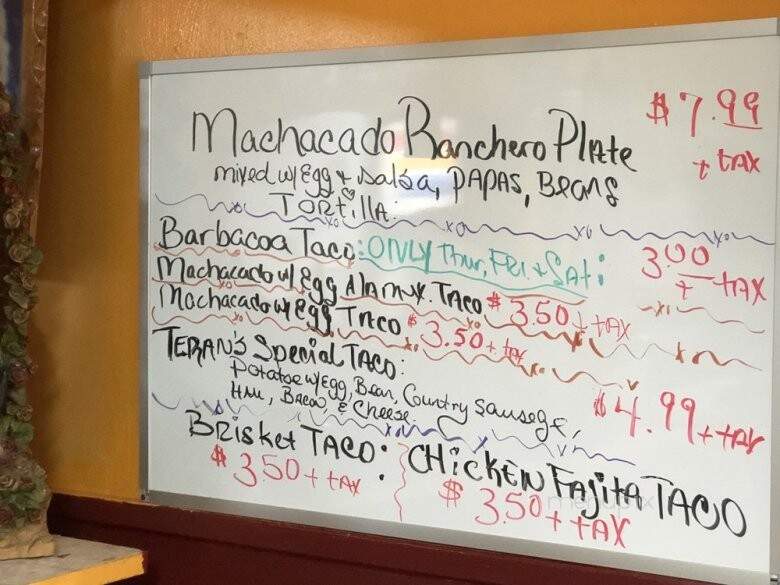 Machacado Ranchero Plate $7.99
mixed w/ Egg + Salsa, PAPAS, Beans + tax
TORtillA.
Barbacoa Taco: ONLY Thur, FRI. + SAt: 3.00 + tAX
Machacado w/ Egg A la mex. TACO $3.50 + tAX
Machacado w/ Egg TACO $3.50 + tax
TERAN'S Special TACO:
Potatoe w/ Egg, Bean, Country Sausage,
HAM, Bacon, & Cheese. $4.99 + tAX
BRisket TACO: CHICKEN FAjita TACO
$3.50 + tAX $3.50 + tAX